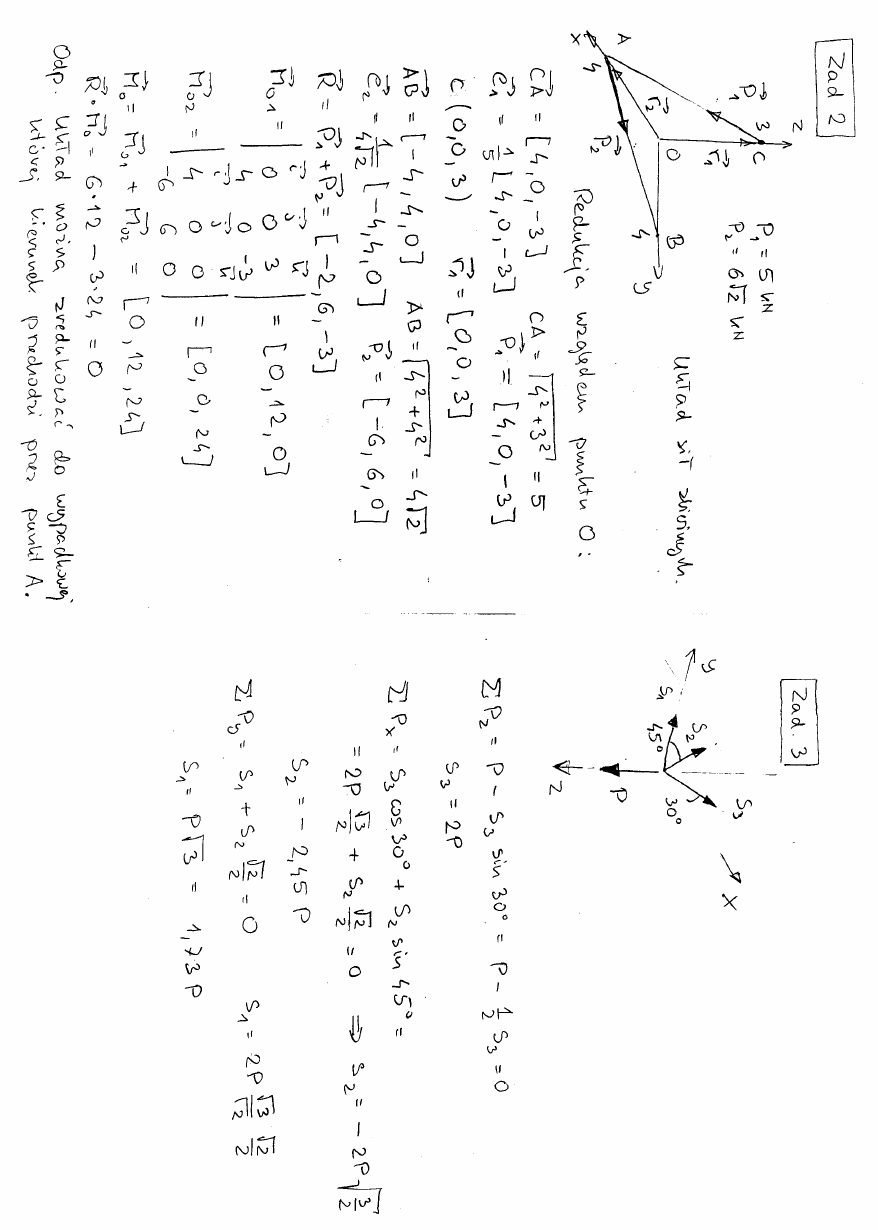 Zad 2
P₁ = 5 kN
P₂ = 6√2 kN
z
3
C
P₁
r₁
O
B
4
y
r₂
P₂
A
4
x
Układ sił zbieżnych.
Redukcja względem punktu O:
CA = [4, 0, -3] CA = √4² + 3² = 5
e₁ = 1/5 [4, 0, -3] P₁ = [4, 0, -3]
C (0, 0, 3) r₁ = [0, 0, 3]
AB = [-4, 4, 0] AB = √4² + 4² = 4√2
e₂ = 1/4√2 [-4, 4, 0] P₂ = [-6, 6, 0]
R = P₁ + P₂ = [-2, 6, -3]
M₀₁ = | i j k |
| 0 0 3 | = [0, 12, 0]
| 4 0 -3 |
M₀₂ = | i j k |
| 4 0 0 | = [0, 0, 24]
| -6 6 0 |
M₀ = M₀₁ + M₀₂ = [0, 12, 24]
R · M₀ = 6·12 - 3·24 = 0
Odp. Układ można zredukować do wypadkowej
której kierunek przechodzi przez punkt A.
Zad. 3
y
S₁
45°
S₂
S₃
30°
x
P
z
Σ Pz = P - S₃ sin 30° = P - 1/2 S₃ = 0
S₃ = 2P
Σ Px = S₃ cos 30° + S₂ sin 45° =
= 2P √3/2 + S₂ √2/2 = 0 ⇒ S₂ = - 2P √3/2
S₂ = - 2,45 P
Σ Py = S₁ + S₂ √2/2 = 0 S₁ = 2P √3/√2 √2/2
S₁ = P√3 = 1,73 P